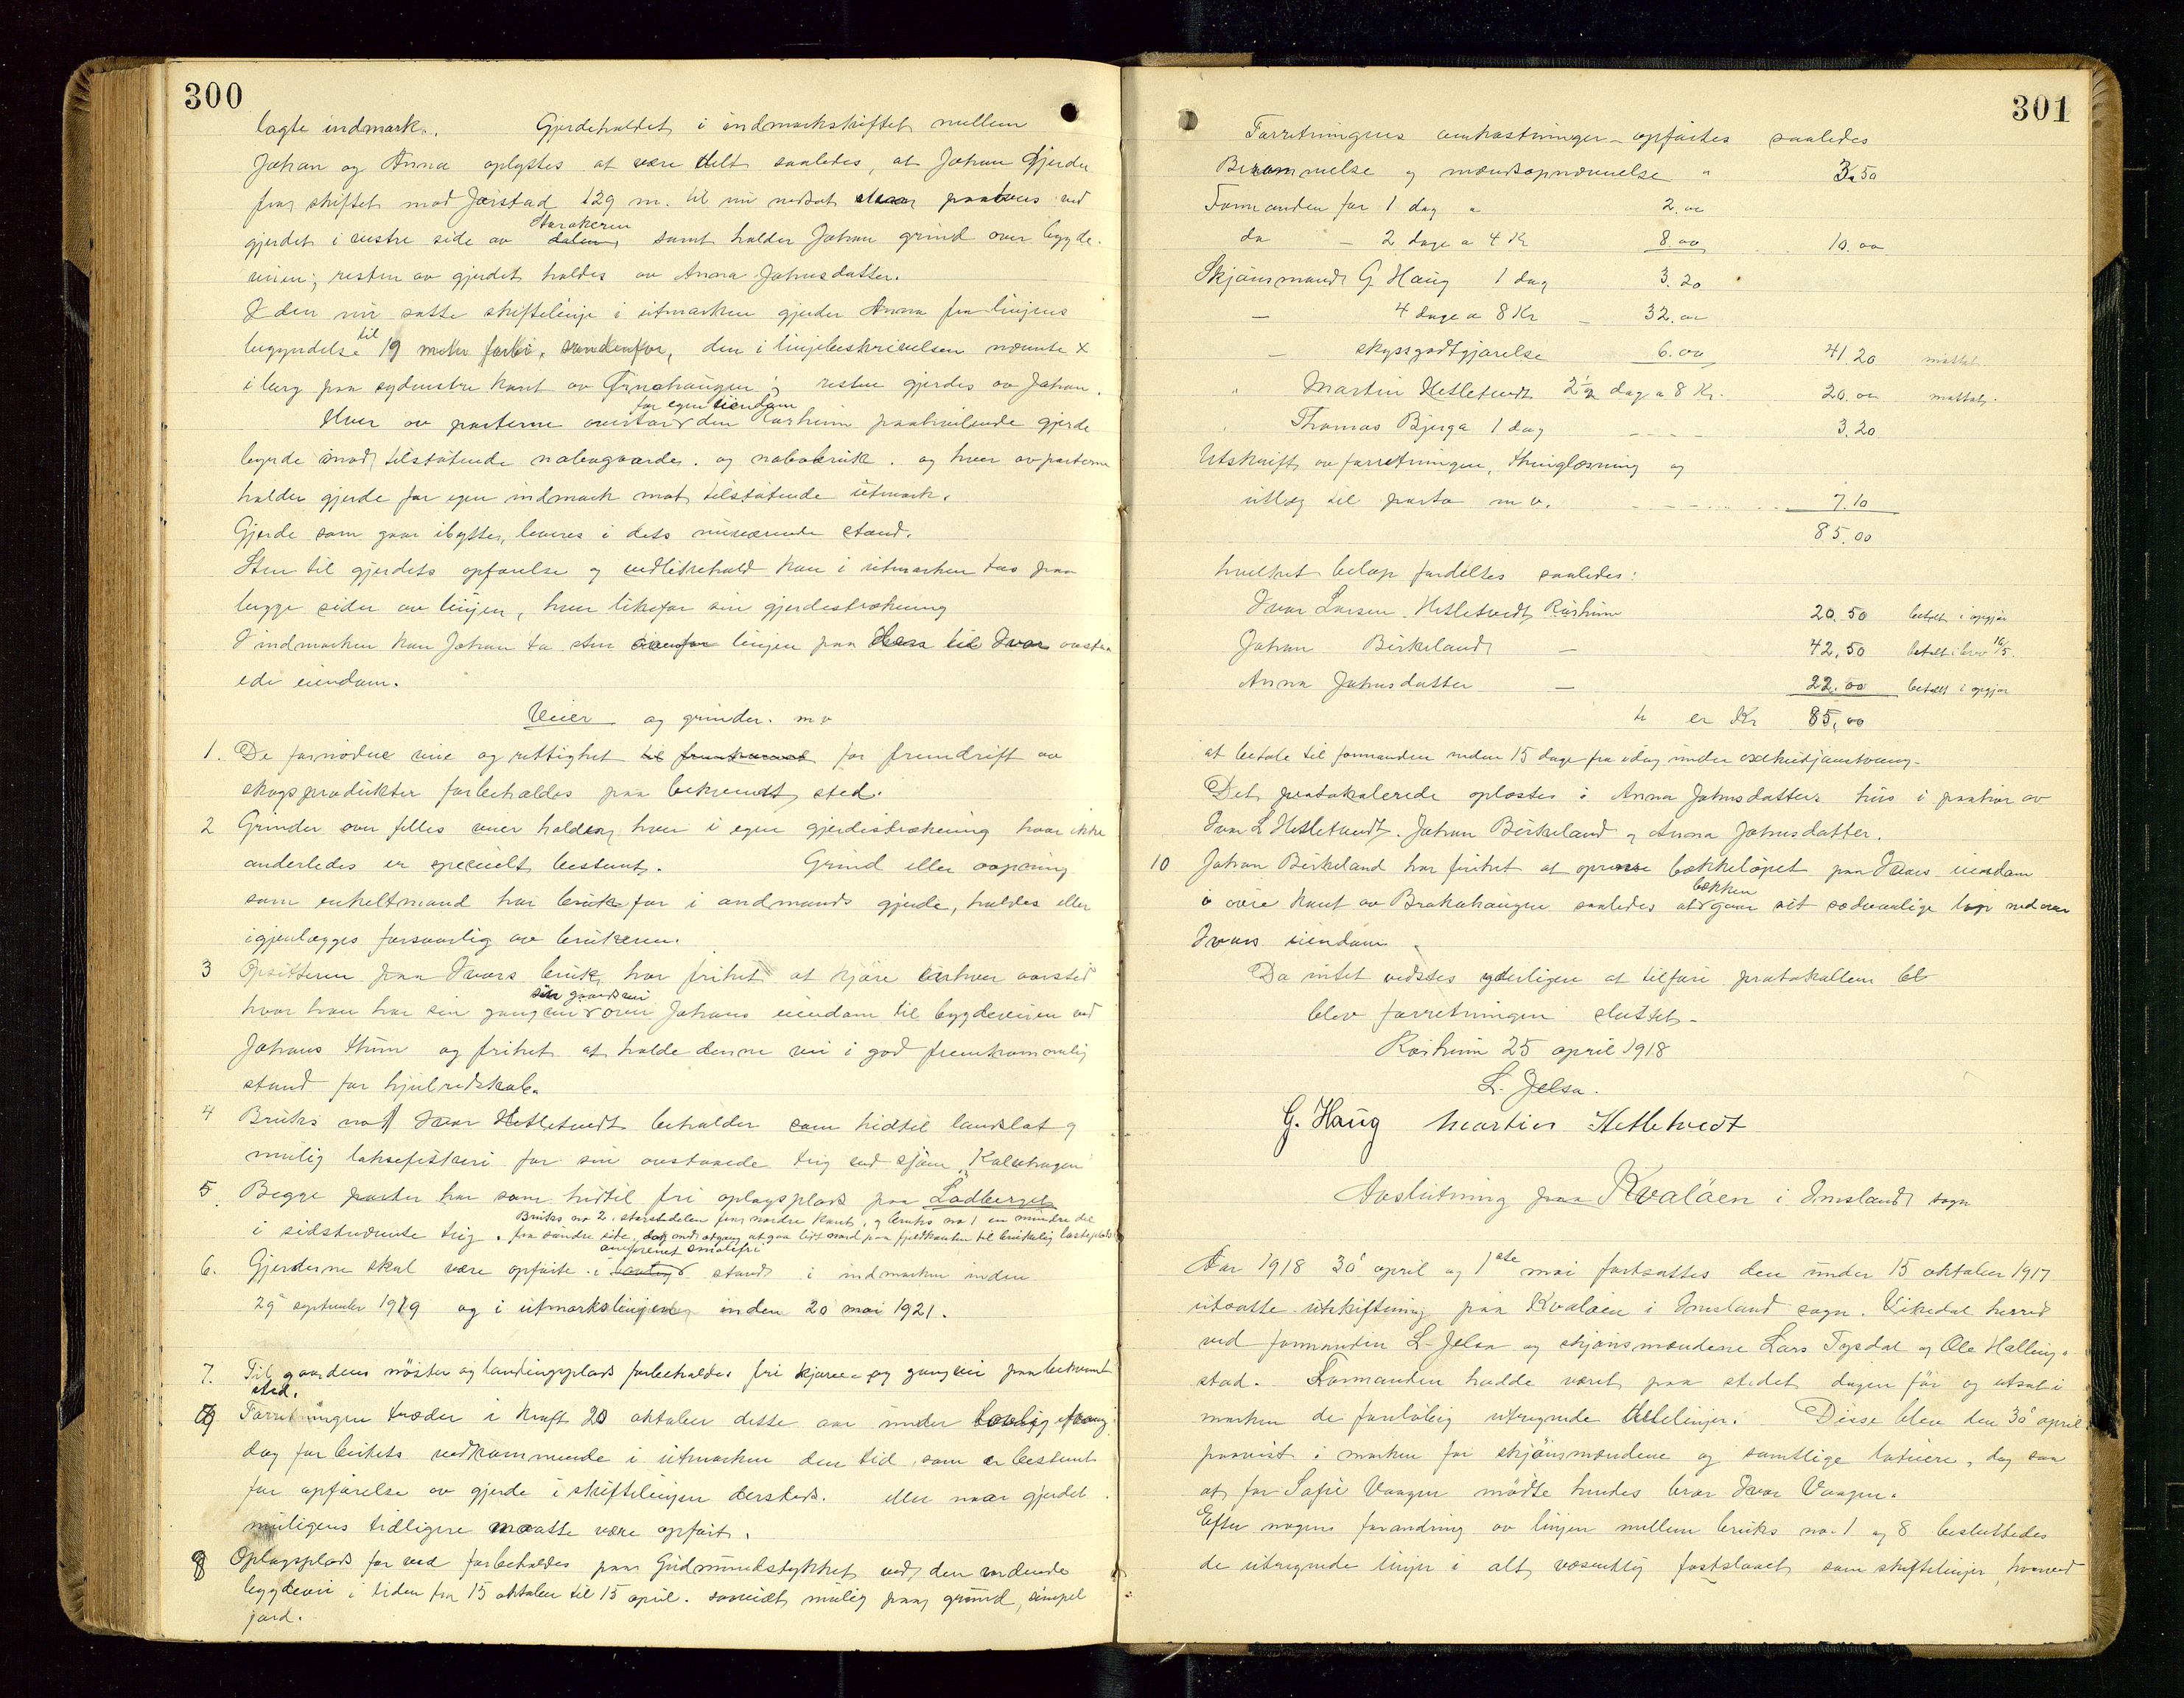 300
lagte indmark. Gjerdeholdet i indmarkskiftet mellem
Johan og Anna oplystes at være delt saaledes, at Johan gjerder
fra skiftet mod Jørstad 129 m. til nu nedsat sten paa ved
gjerdet i vestre side av Storakeren samt holder Johan grind over bygde-
veien; resten av gjerdet holdes av Anna Johnsdatter.
I den nu satte skiftelinje i utmarken gjerder Anna fra linjens
begyndelse til 19 meter forbi, søndenfor, den i linjebeskrivelsen nevnte x
i berg paa sydvestre kant av resten gjerdes av Johan.
Hver av parterne overtar for egen eiendom den Røsheim paahvilende gjerde
byrde mod tilstøtende nabogaarder. og nabobruk. og hver av parterne
holder gjerde for egen indmark mot tilstøtende utmark.
Gjerde som gaar ibytte, leveres i dets nuværende stand.
Sten til gjerdets opførelse og vedlikehold kan i utmarken tas paa
begge sider av linjen, hver likefor sin gjerdestrækning
I indmarken kan Johan ta sten ovenfor linjen paa til Ivar overta
ede eiendom.
Veier og grinder. m v
1. De fornødne veie og rettighet til for fremdrift av
skogsprodukter forbeholdes paa bekvemt sted.
2 Grinder over felles veier holder hver i egen gjerdestrækning hvor ikke
anderledes er specielt bestemt. Grind eller aapning
som enkeltmand har bruk for i andmands gjerde, holdes eller
igjenlægges forsvarlig av brukeren.
3 Opsitteren paa Ivars bruk har frihet at kjøre enhver aarstid
hvor han har sin gangvei sin gaardsvei over Johans eiendom til bygdeveien ved
Johans tun og frihet at holde denne vei i god fremkommelig
stand for hjulredskab.
4 Bruks no 1 Ivar Hetletvedt beholder som hidtil landslot og
mulig laksefiskeri for sin overtagede teig ved sjøen "Kalvehagen"
5 Begge parter har som hidtil fri oplagsplads paa Ladberget
i sidstnevnte teig. Bruks no 2. størstedelen fra nordre kant, og bruks no 1 en mindre del
fra søndre side, dog med adgang at gaa litt nord paa fjeldkanten til brukelig lasteplads
6. Gjerderne skal være opførte i smalefri stand i indmarken inden
29 september 1919 og i utmarkslinjen inden 20 mai 1921.
7. Til gaardens nøster og landingsplads forbeholdes fri kjøre- og gangvei paa bekvemt
sted.
Forretningen træder i kraft 20 oktober dette aar under lovlig
dog for beitets vedkommende i utmarken den tid, som er bestemt
for opførelse av gjerde i skiftelinjen dersteds. eller naar gjerdet
muligens tidligere maatte være opført.
8 Oplagsplads for ved forbeholdes paa Gudmundstykket ved den vordende
bygdevei i tiden fra 15 oktober til 15 april. saavidt mulig paa grund, simpel
jord.
301
Forretningens omkostninger opførtes saaledes
Berammelse og mændsopnævnelse " 3.50
Formanden for 1 dag " 2.00
do - 2 dage a 4 Kr 8.00 10.00
Skjønsmand G. Haug 1 dag 3.20
- 4 dage a 8 Kr - 32.00
- skyssgodtgjørelse 6.00 41.20 mottat
" Martin Hetletvedt 2½ dag a 8 Kr. 20.00 mottat.
Thomas Bjerga 1 dag 3.20
Utskrift av forretningen, thinglæsning og
utlæg til porto m v. 7.10
85.00
hvilket beløp fordeltes saaledes:
Ivar Larsen Hetletvedt Røsheim 20.50 betalt i opgjør
Johan Birkeland - 42,50 betalt i brev 16/5.
Anna Johnsdatter - 22.00 betalt i opgjør
er Kr 85,00
at betale til formanden inden 15 dage fra idag under exekutjonstvang.
Det protokolerede oplæstes i Anna Johnsdatters hus i paahør av
Ivar L Hetletvedt. Johan Birkeland og Anna Johnsdatter.
10 Johan Birkeland har frihet at oprense bækkeløpet paa Ivars eiendom
i øvre kant av Brakahaugen saaledes at bækken gaar sit sedvanlige løp nedover
Ivars eiendom.
Da intet vedstes yderligere at tilføre protokollen bl
blev forretningen sluttet.
Røsheim 25 april 1918
L. Jelsa.
G. Haug Martin Hetletvedt
Avslutning paa Kvaløen i Imsland sogn
Aar 1918 30 april og 1ste mai fortsattes den under 15 oktober 1917
utsatte utskiftning paa Kvaløen i Imsland sogn. Vikedal herred
ved formanden L. Jelsa og skjønsmændene Lars Tysdal og Ole Halling-
stad. Formanden hadde været paa stedet dagen før og utsat i
marken de foreløbig utregnede delelinjer. Disse blev den 30 april
paavist i marken for skjønsmændene og samtlige loteiere, dog saa
at for Sofie Vaagen mødte hendes bror Ivar Vaagen.
Efter nogen forandring av linjen mellem bruks no. 1 og 8 besluttedes
de utregnede linjer i alt væsentlig fastslaaet som skiftelinjer, hvorved